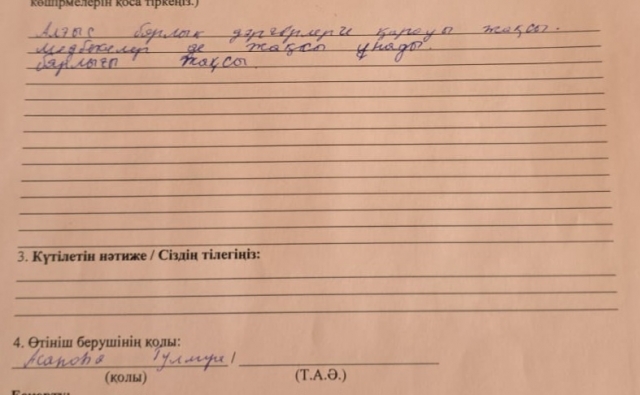 көшірмелерін қоса тіркеңіз.)
Алғыс барлық дәрігерлерге қарауы жақсы.
Медбикелер де жақсы ұнады.
барлығы жақсы.
3. Күтілетін нәтиже / Сіздің тілегіңіз:
4. Өтініш берушінің қолы:
Жапова Гулмира /
(қолы) (Т.А.Ә.)